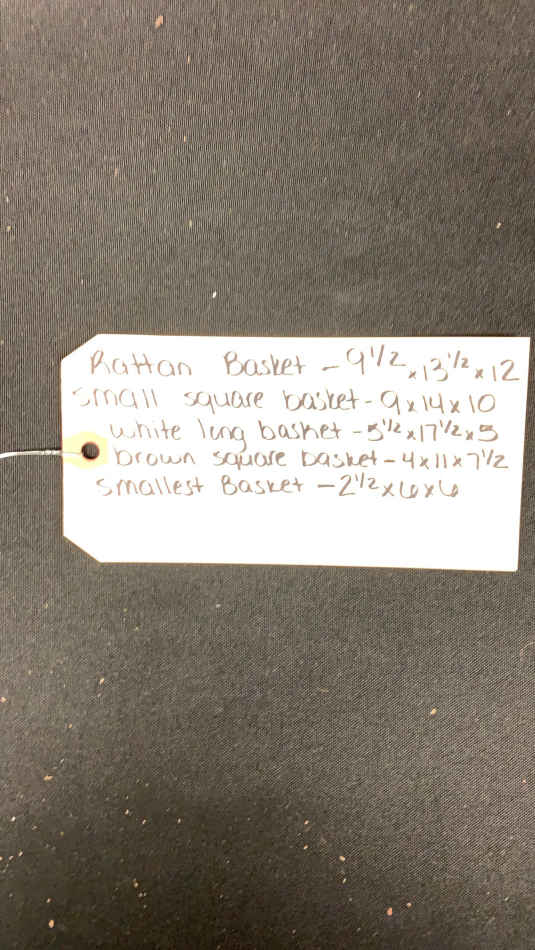 Rattan Basket - 9 1/2 x 13 1/2 x 12
small square basket - 9 x 14 x 10
white long basket - 5 1/2 x 17 1/2 x 5
brown square basket - 4 x 11 x 7 1/2
smallest Basket - 2 1/2 x 6 x 6